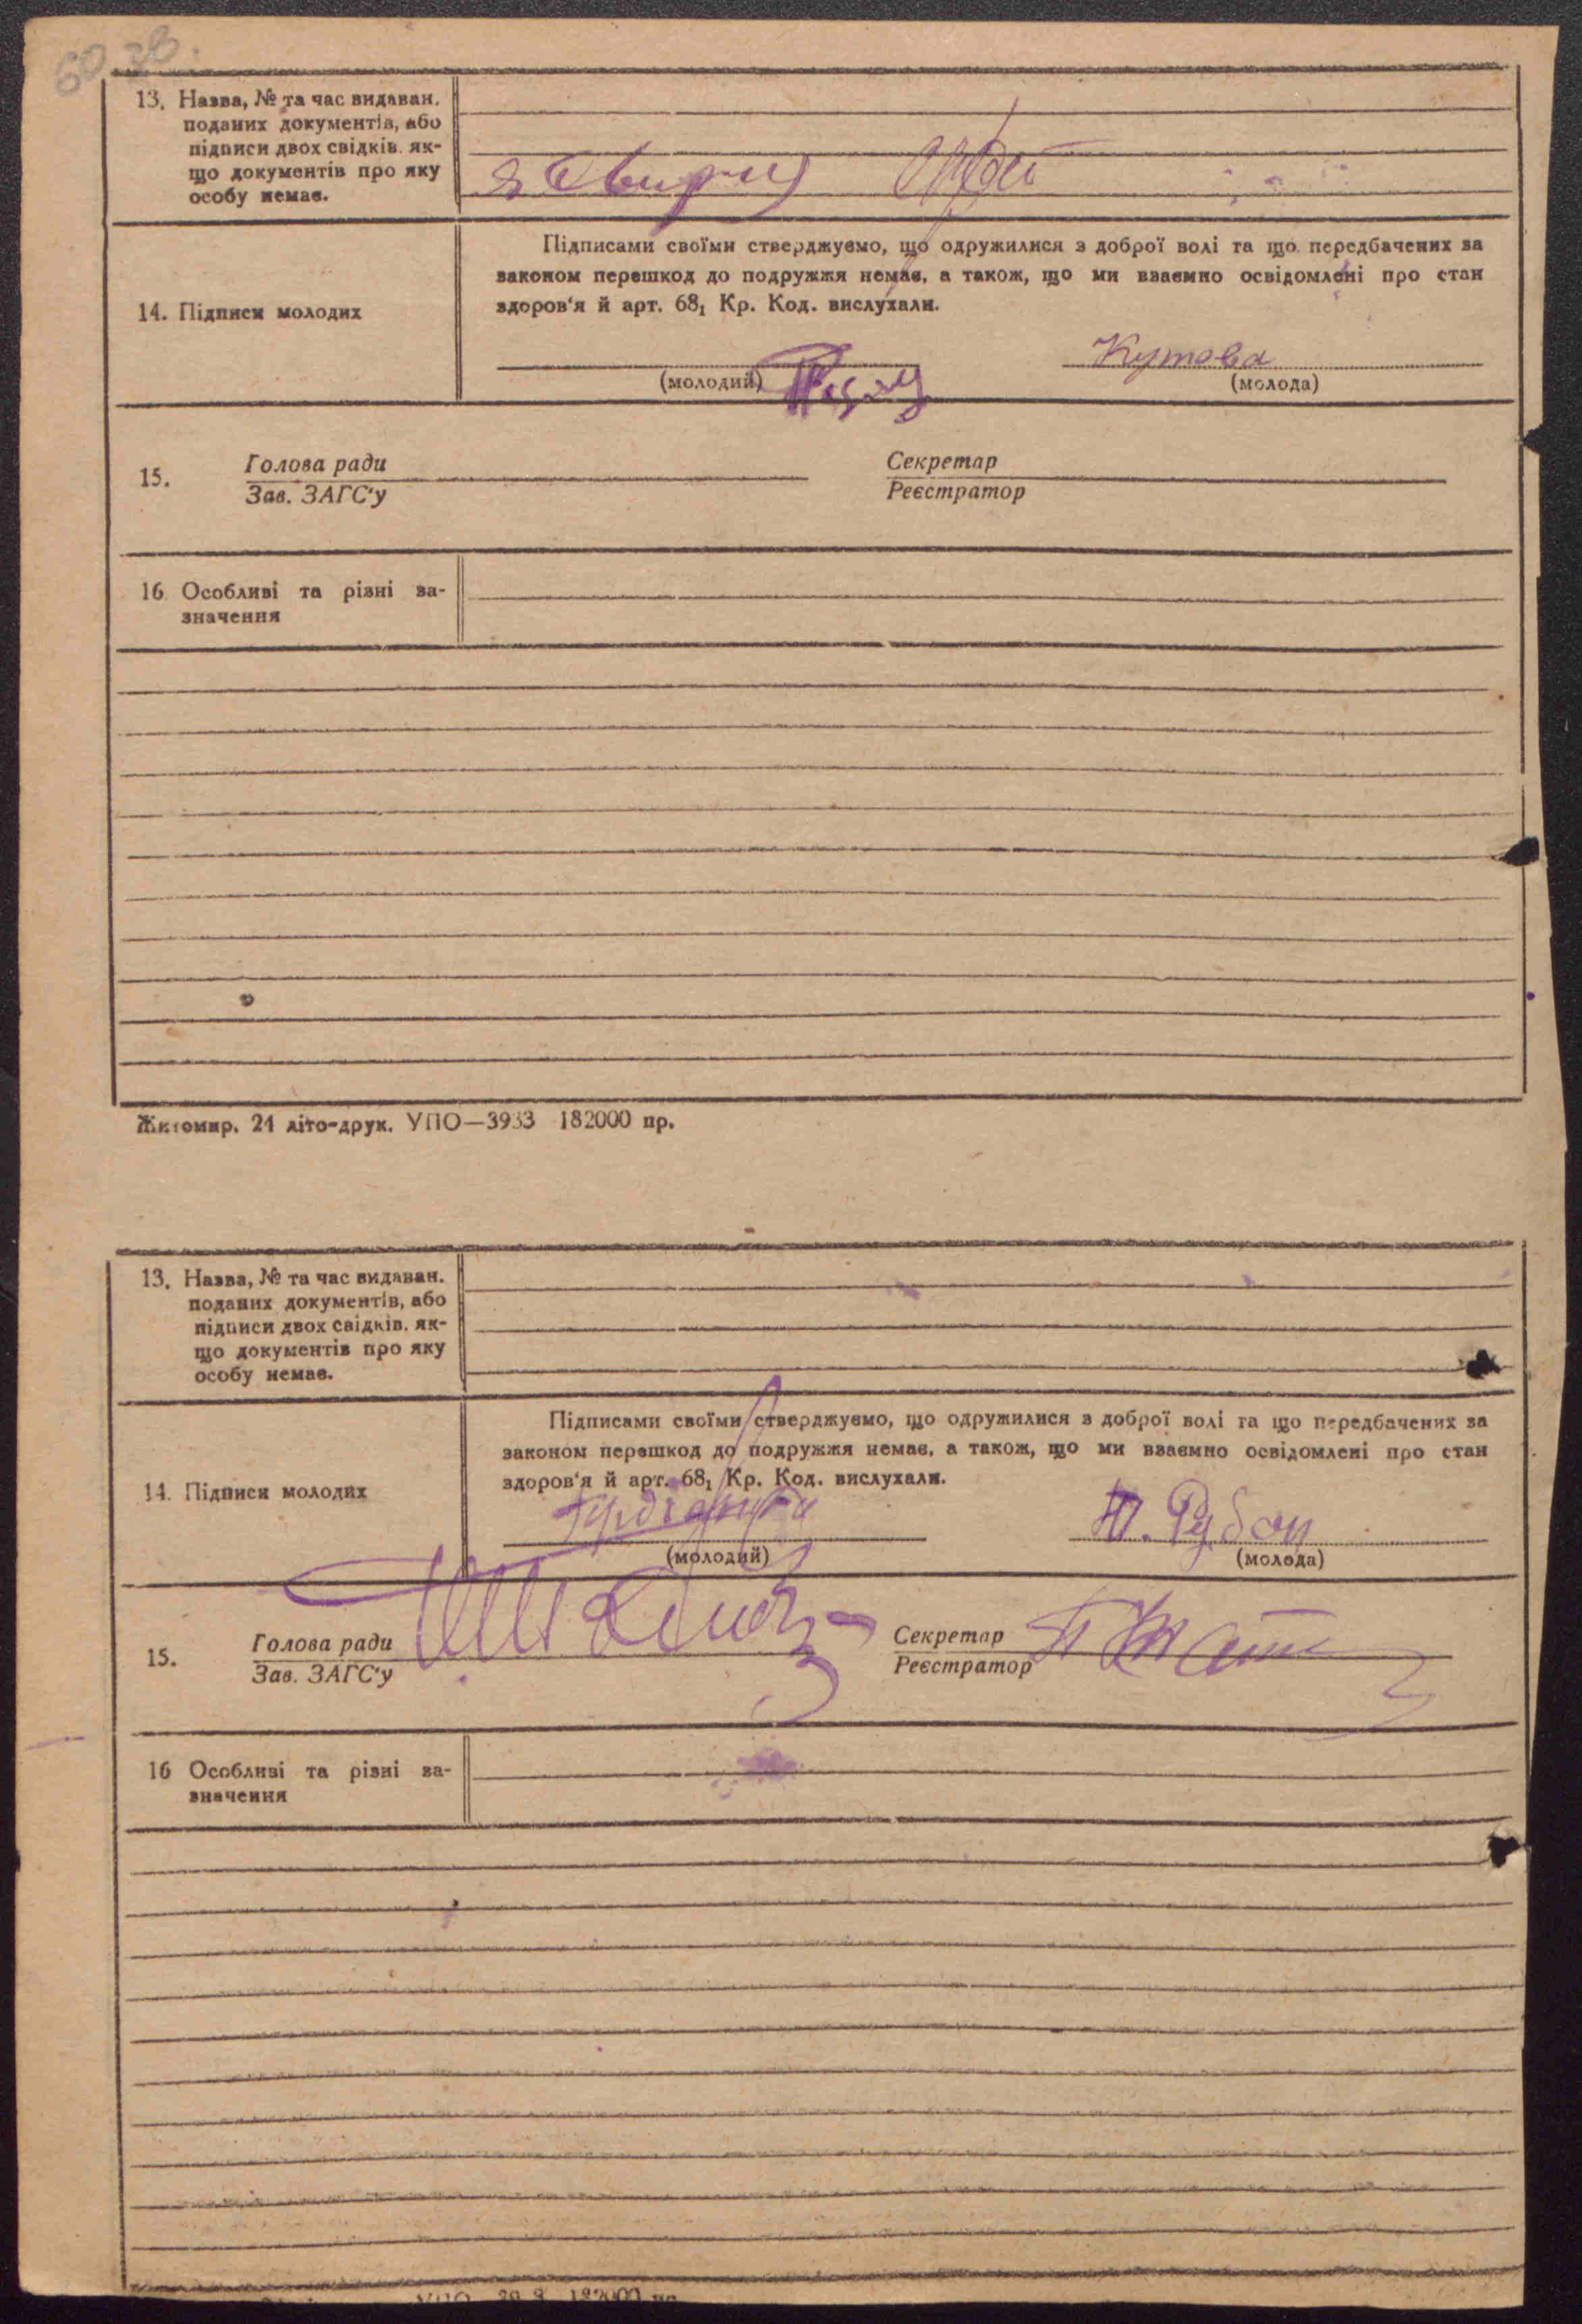 60 зв.
13. Назва, № та час видаван.
поданих документів, або
підписи двох свідків. як-
що документів про яку
особу немає.
Підписами своїми стверджуємо, що одружилися з доброї волі та що передбачених за
законом перешкод до подружжя немає, а також, що ми взаємно освідомлені про стан
14. Підписи молодих
здоров'я й арт. 68₁ Кр. Код. вислухали.
Кутова
(молодий)
(молода)
15.
Голова ради
Зав. ЗАГС'у
Секретар
Реєстратор
16 Особливі та різні за-
значення
Житомир. 21 літо-друк. УПО—3933 182000 пр.
13. Назва, № та час видаван.
поданих документів, або
підписи двох свідків. як-
що документів про яку
особу немає.
Підписами своїми стверджуємо, що одружилися з доброї волі та що передбачених за
законом перешкод до подружжя немає, а також, що ми взаємно освідомлені про стан
14. Підписи молодих
здоров'я й арт. 68₁ Кр. Код. вислухали.
(молодий)
(молода)
15.
Голова ради
Зав. ЗАГС'у
Секретар
Реєстратор
16 Особливі та різні за-
значення